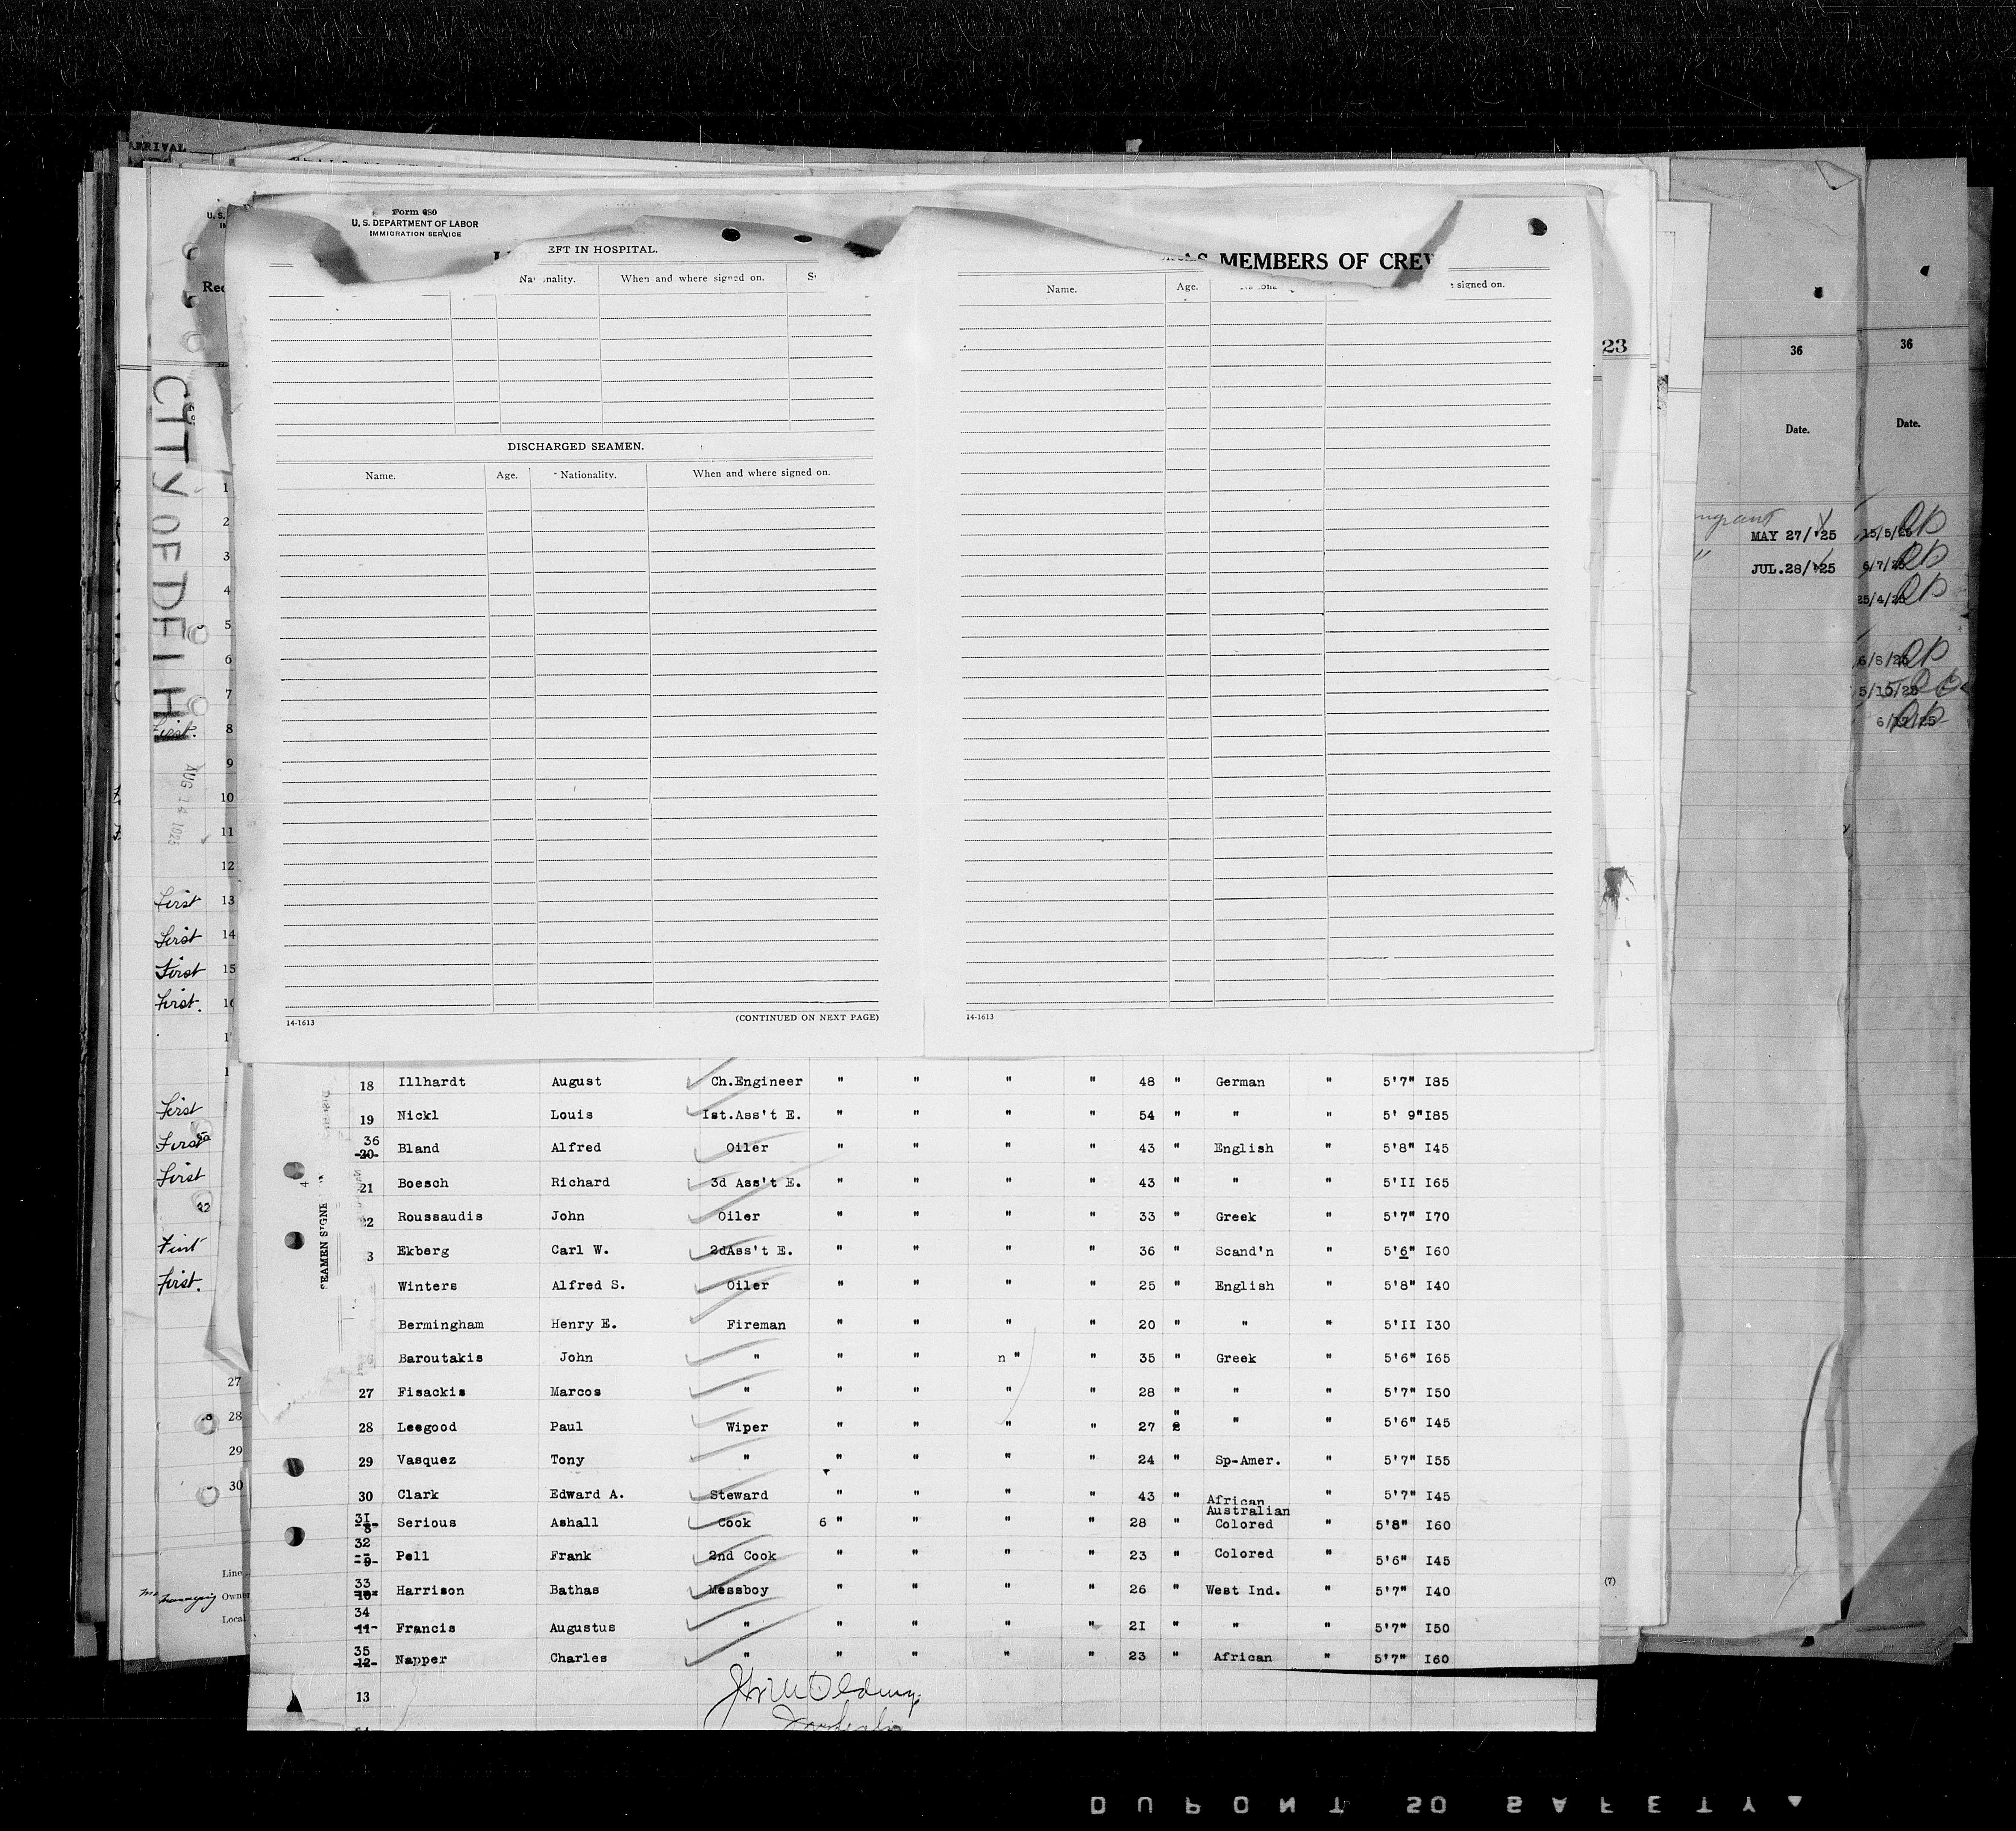 ARRIVAL
Form 680
U. S. DEPARTMENT OF LABOR
IMMIGRATION SERVICE
EFT IN HOSPITAL.
AS MEMBERS OF CREW
When and where signed on.
Name. Age. signed on.
DISCHARGED SEAMEN.
Name. Age. Nationality. When and where signed on.
(CONTINUED ON NEXT PAGE)
14-1613
14-1613
23
36
Date.
MAY 27/'25
JUL.28/'25
36
Date.
15/5/25
6/7/25
25/4/25
6/8/25
5/15/25
CITY OF DELHI
AUG 14 1925
1
2
3
4
5
6
7
First. 8
9
10
11
12
First 13
First 14
First 15
First.
First
First
First
First
First.
27
28
29
30
Line
Owner
Local
SEAMEN SIGNE
18 Illhardt August Ch.Engineer " " " " 48 " German " 5'7" I85
19 Nickl Louis Ist.Ass't E. " " " " 54 " " " 5' 9" I85
36
20 Bland Alfred Oiler " " " " 43 " English " 5'8" I45
21 Boesch Richard 3d Ass't E. " " " " 43 " " " 5'II I65
22 Roussaudis John Oiler " " " " 33 " Greek " 5'7" I70
3 Ekberg Carl W. 2dAss't E. " " " " 36 " Scand'n " 5'6" I60
Winters Alfred S. Oiler " " " " 25 " English " 5'8" I40
Bermingham Henry E. Fireman " " " " 20 " " " 5'II I30
Baroutakis John " " " n " " 35 " Greek " 5'6" I65
27 Fisackis Marcos " " " " " 28 " " " 5'7" I50
28 Leegood Paul Wiper " " " " 27 " " " 5'6" I45
29 Vasquez Tony " " " " " 24 " Sp-Amer. " 5'7" I55
30 Clark Edward A. Steward " " " " 43 " African " 5'7" I45
Australian
31 8 Serious Ashall Cook 6 " " " " 28 " Colored " 5'8" I60
32
9 Pell Frank 2nd Cook " " " " 23 " Colored " 5'6" I45
33
10 Harrison Bathas Messboy " " " " 26 " West Ind. " 5'7" I40
34
11 Francis Augustus " " " " " 2I " " " 5'7" I50
35
12 Napper Charles " " " " " 23 " African " 5'7" I60
13
(7)
DUPONT 50 SAFETY